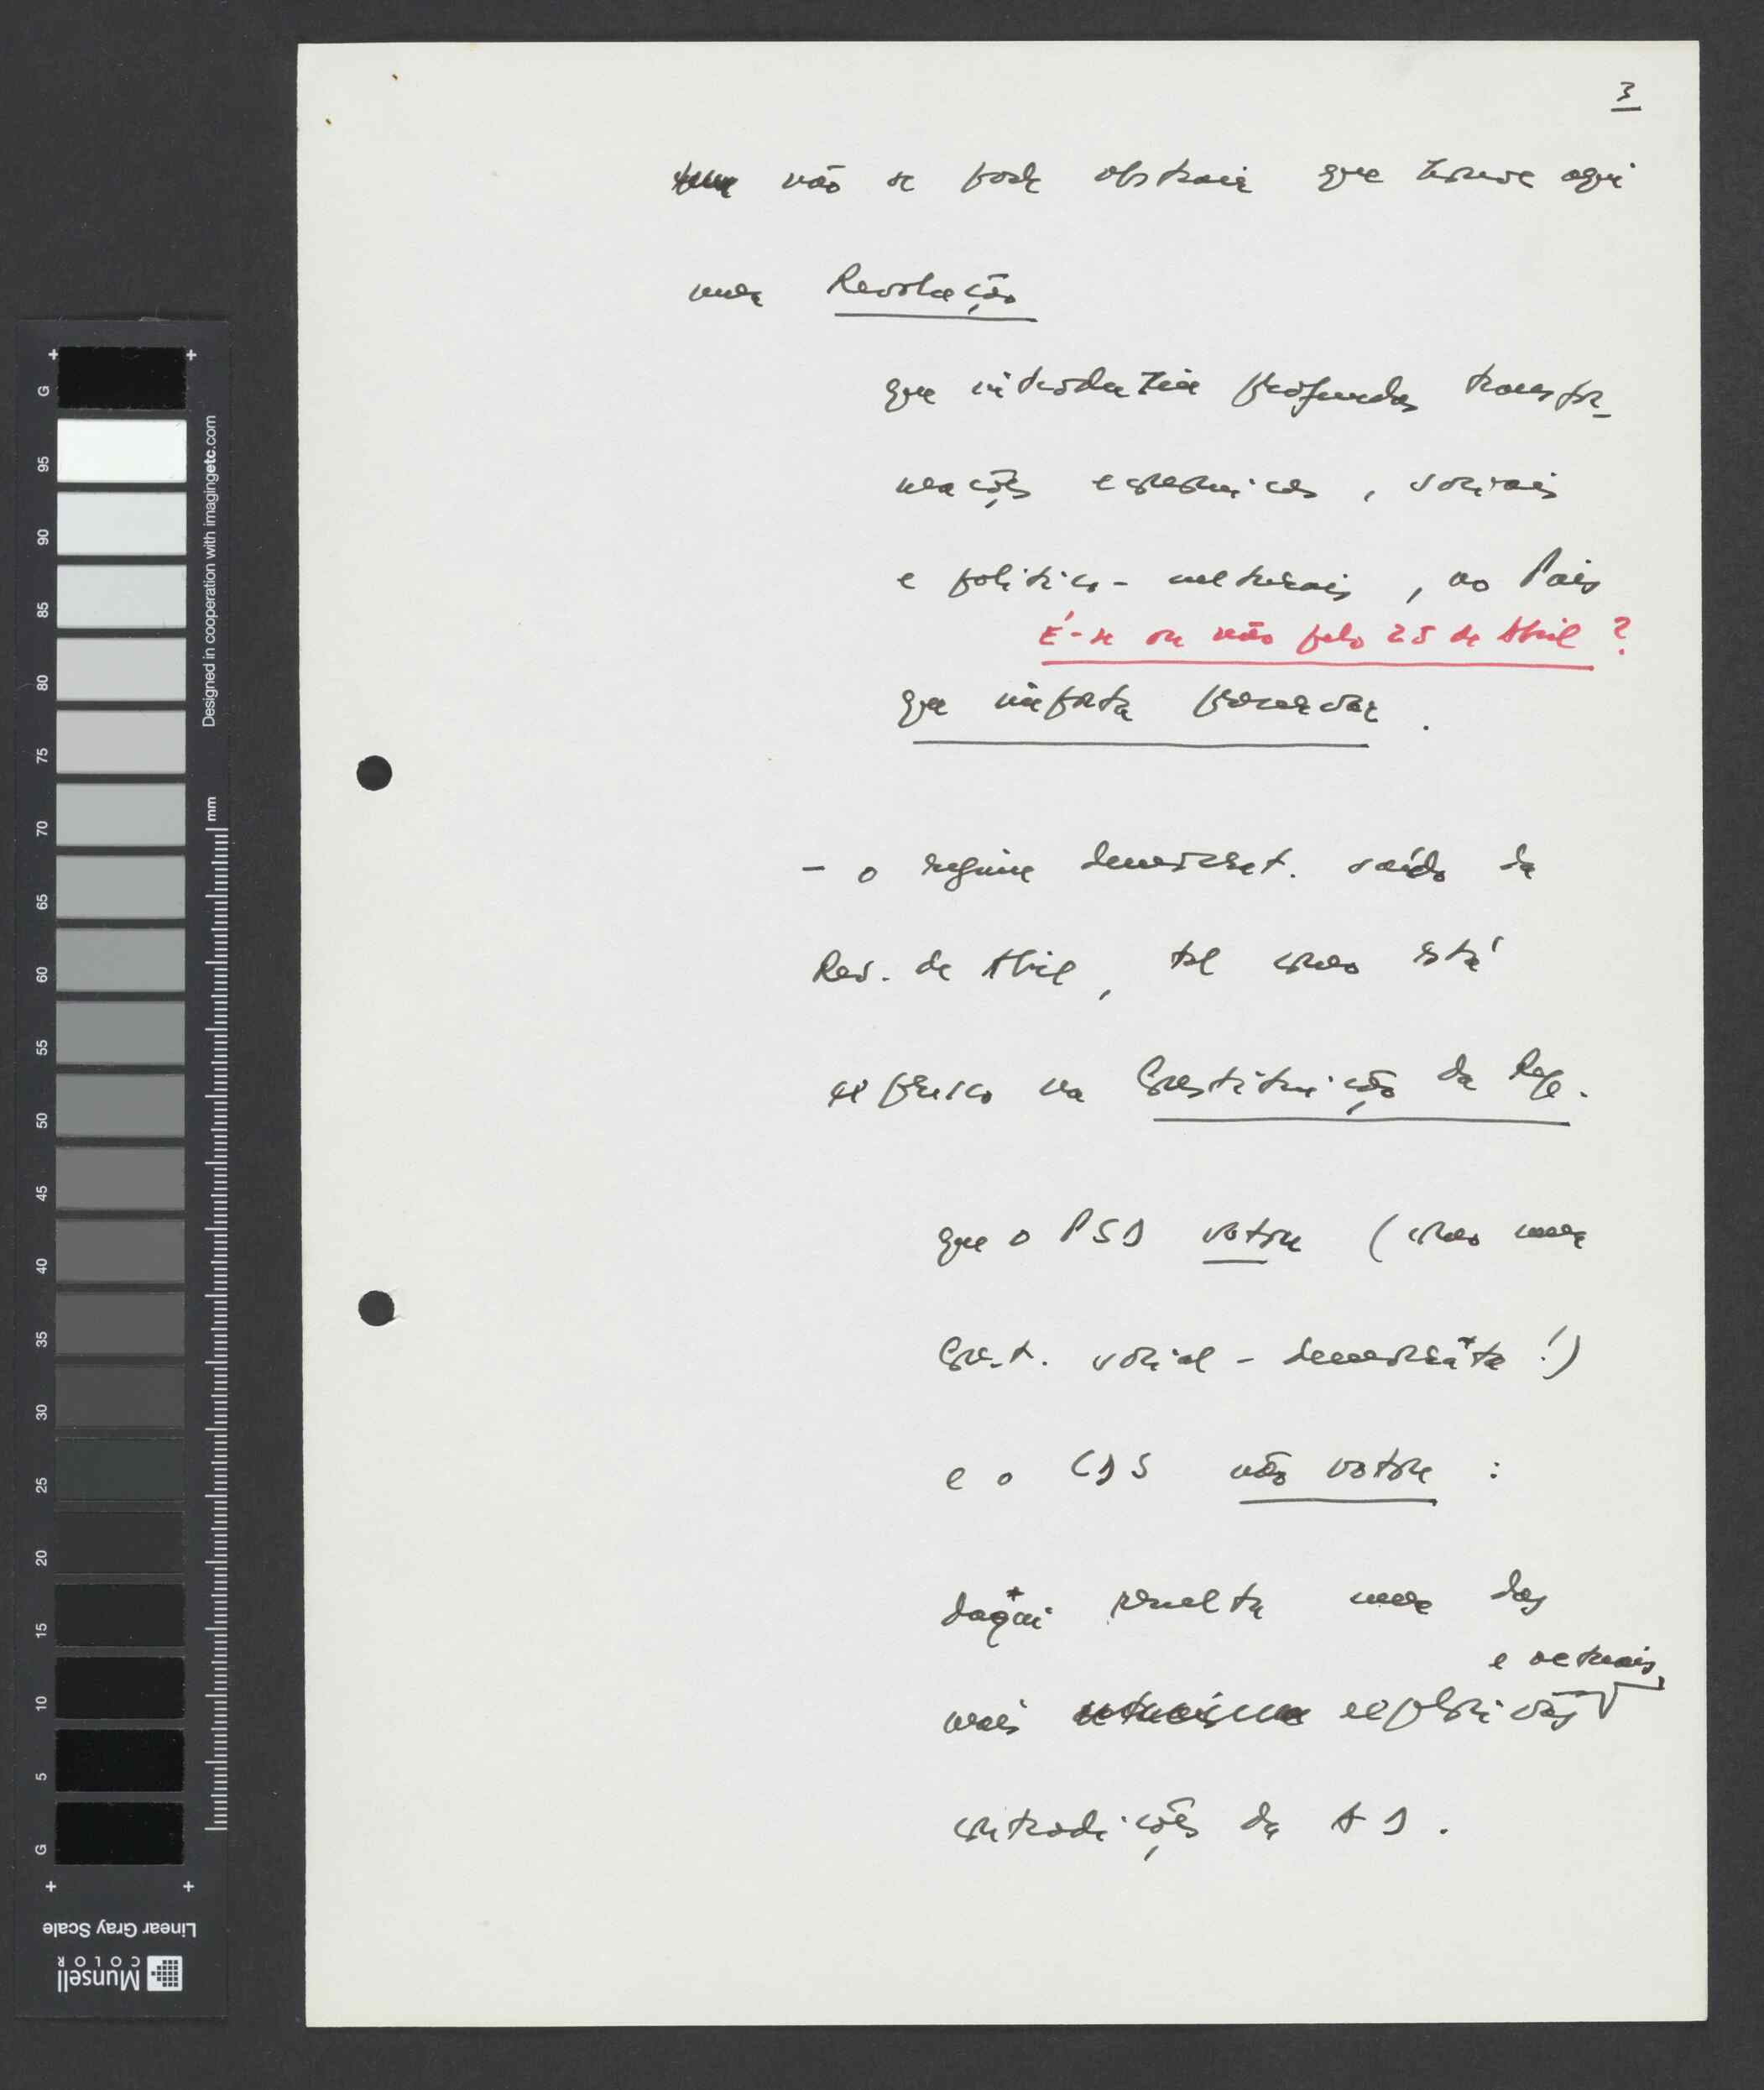 3
não se pode abstrair que houve aqui
uma Revolução
que introduziu profundas transfor-
mações económicas, sociais
e político-culturais, no País
É-se ou não pelo 25 de Abril?
que importa preservar.
- o regime democrát. saído da
Rev. de Abril, tal como está
expresso na Constituição da Rep.
que o PSD votou (como uma
Const. social-democráta!)
e o CDS não votou:
daqui resulta uma das
e actuais
mais explosivas
contradições da AD.
G
95
90
85
80
75
70
65
60
55
50
45
40
35
30
25
20
15
10
5
G
Designed in cooperation with imagingetc.com
mm
Linear Gray Scale
Munsell
COLOR